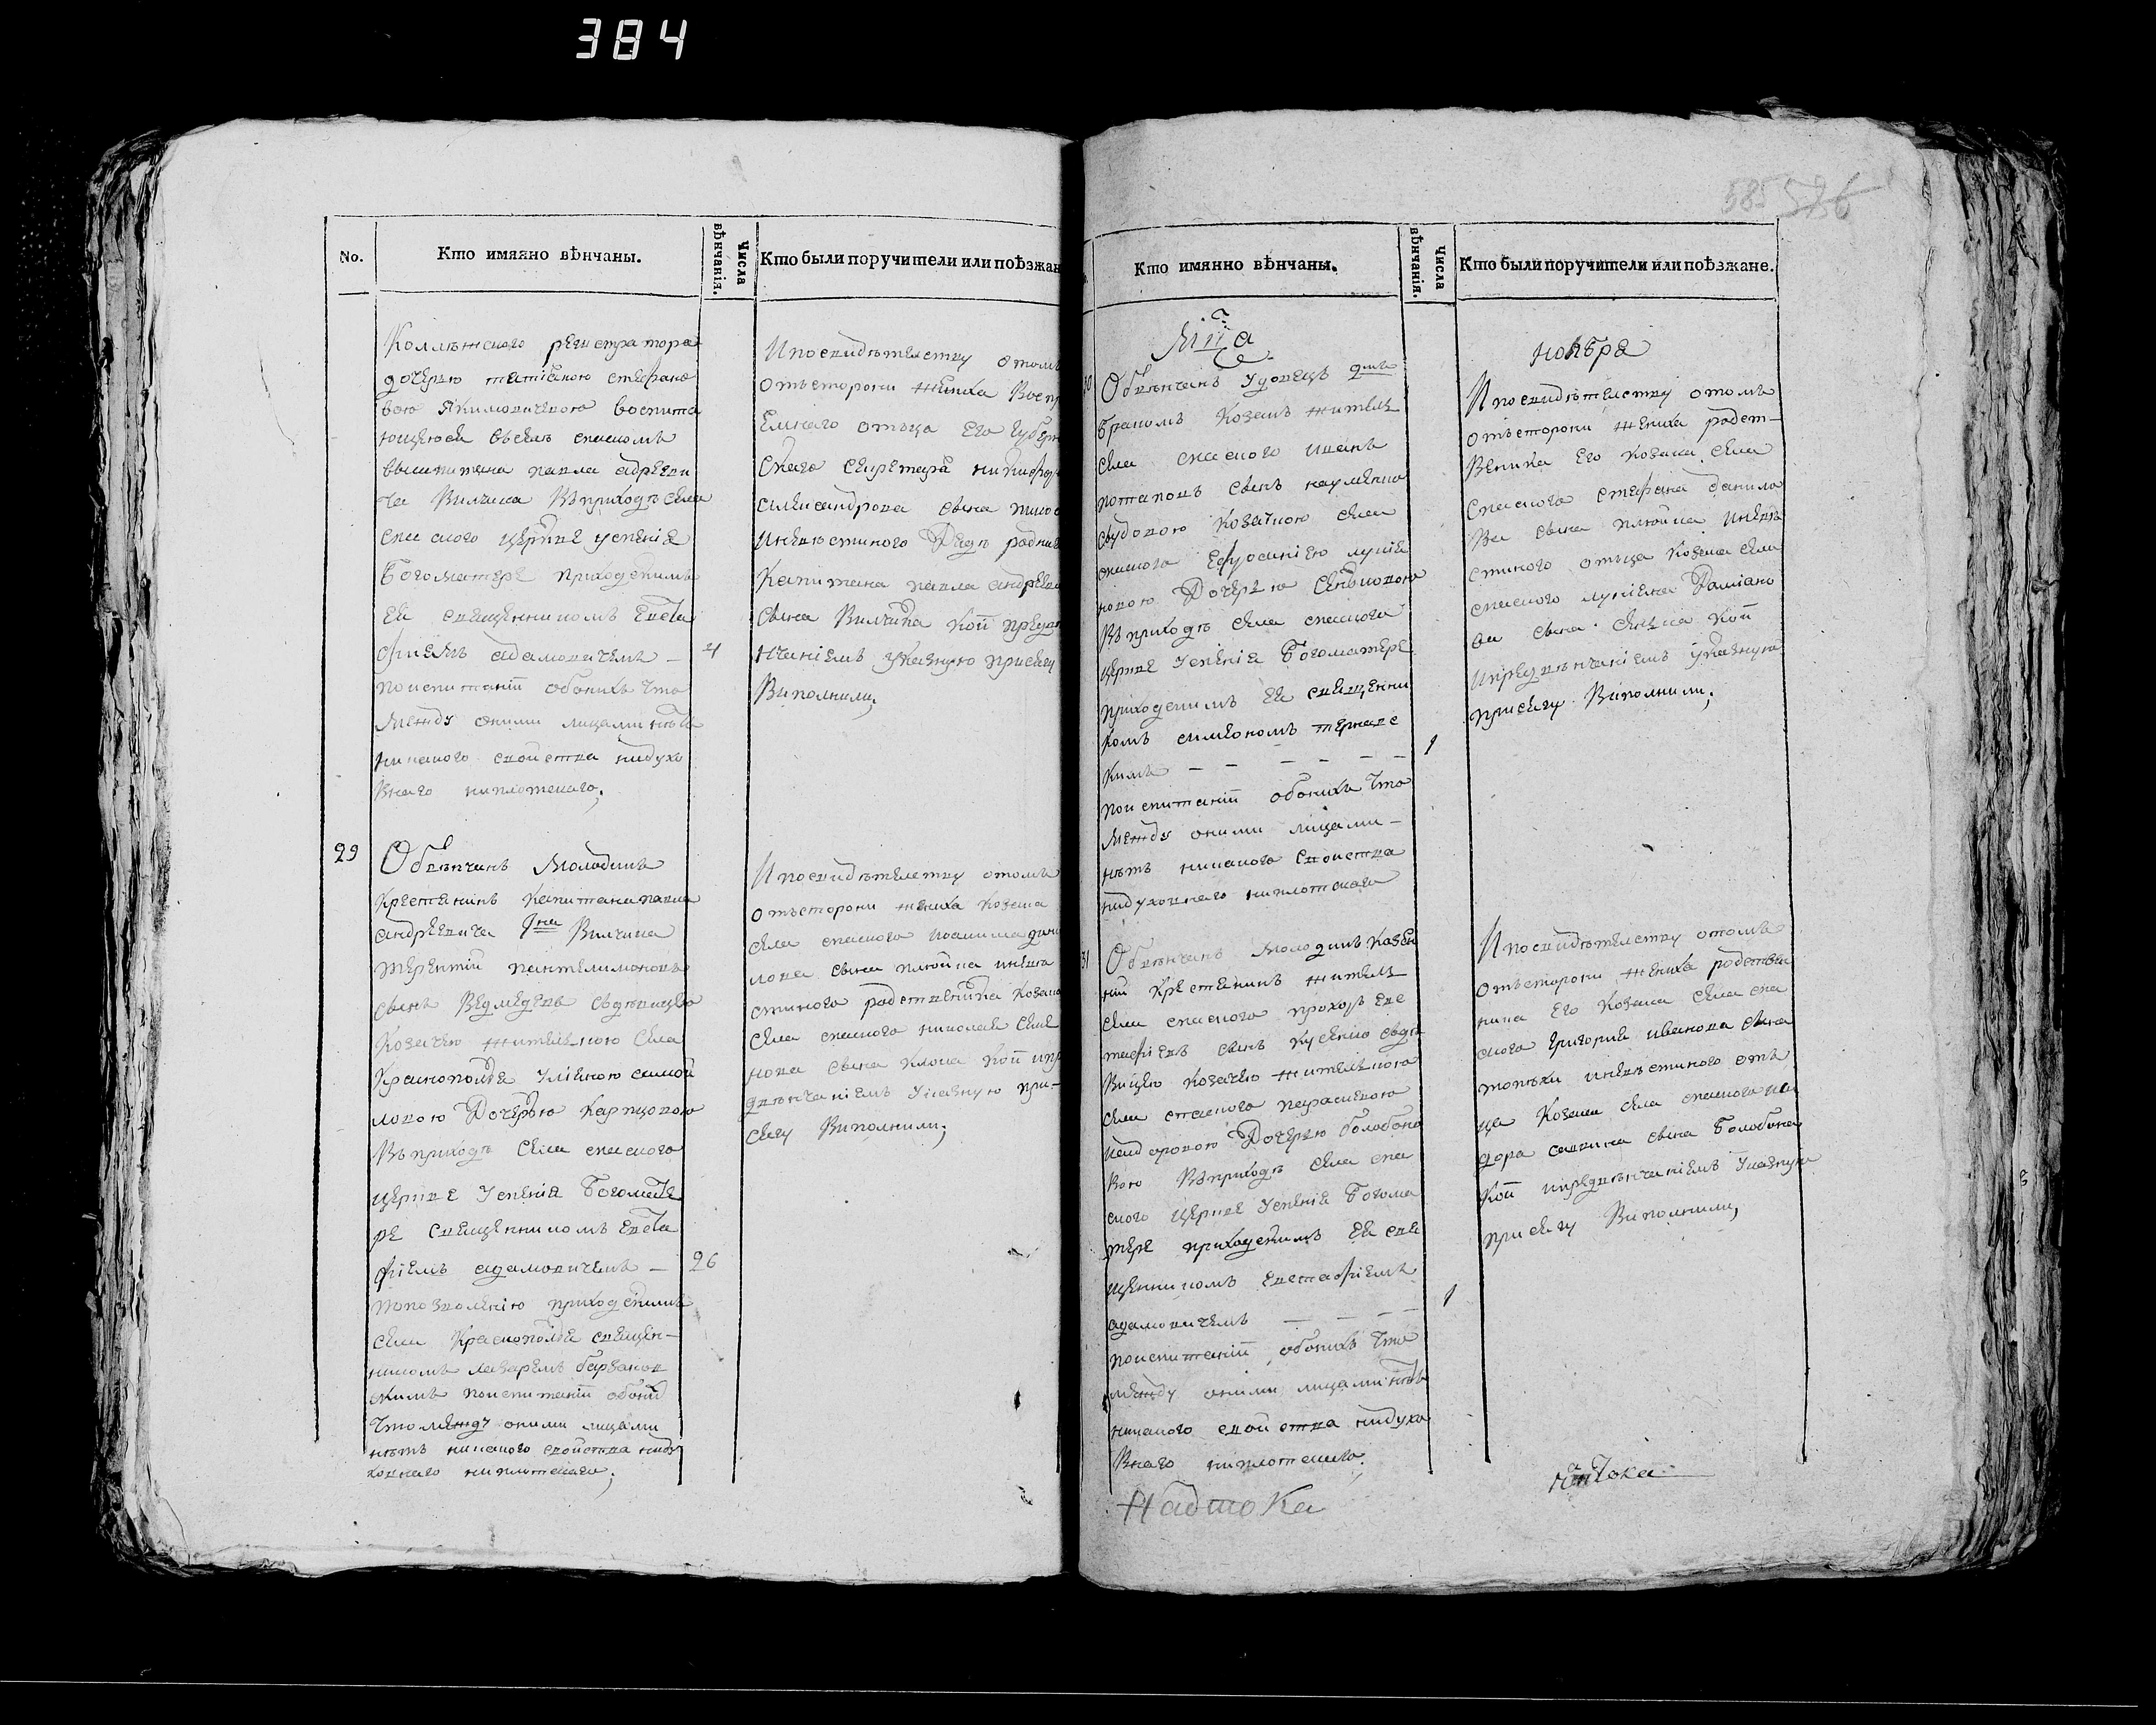 384
585 586
No.
Кто имянно вѣнчаны.
Числа вѣнчанія.
Кто были поручители или поѣзжан
Коллѣжского регистратора
дочерью татіаною стефано
вою Якимовичевою воспита
ющеюся
капитана павла андрееви
ча Вилчика Въприходѣ села
спаского церкве успенія
Богоматере приходскимъ
ея священникомъ Евста
фіемъ адамовичемъ —
21
поиспитаніи обоихъ что
между оними лицами нѣтъ
никакого свойства нидухо
внаго ниплотскаго;
Ипосвидѣтелству отомъ
отъсторони жениха Восп
емнаго отъца его губерн
скаго секретара никифор
александрова сына
Иневѣстиного Дяди
Капитана павла андреева
сына Вилчика кои предв
нчаніемъ указную присягу
Виполнили;
29
Обвѣнчанъ Молодикъ
крестянинъ капитана павла
андреевича Вилчика
терентій пантелимоновъ
сынъ Ведмедевъ
козачою жителкою села
Краснополя Уліяною самой
ловою Дочерью Карпцовою
Въприходѣ села спаского
церкве Успенія Богомате
ре священникомъ Евста
фіемъ адамовичемъ —
26
попозволенію приходскимъ
села Краснополя священ-
никомъ лазаремъ
скимъ поиспитаніи обоихъ
Что между оними лицами
нѣтъ никакого свойства ниду
ховнаго ниплотскаго;
Ипосвидѣтелству отомъ
отъсторони жениха козака
села спаского иоакима дани
лова сына плюйка иневѣ
стиного родственника козака
села спаского николая семе
нова сына клока кои пре
двѣнчаніемъ Указную при-
сягу Виполнили;
Кто имянно вѣнчаны.
Числа вѣнчанія.
Кто были поручители или поѣзжане.
ноября
Обвѣнчанъ Удовецъ
бракомъ козакъ житель
села спаского иванъ
потаповъ сынъ науменко
свудовою козачкою села
спаского Ефросиніею лукія
новою Дочерью
Въприходѣ села спаского
церкве Успенія Богоматере
приходскимъ ея священни
комъ симеономъ тернавс
кимъ — — — — — —
1
поиспитаніи обоихъ что
между оними лицами —
нѣтъ никакого свойства
нидуховнаго ниплотскаго
Ипосвидѣтелству отомъ
отъсторони жениха родст-
веника его козака села
спаского стефана данило
ва сына плюйка иневѣ
стиного отъца козака села
спаского лукіяна Даміано
ва сына кои
ипредвѣнчаніемъ указную
присягу Виполнили;
31
Обвѣнчанъ молодикъ казен
ній крестянинъ житель
села спаского
сынъ
Вицею козачею жителкою
села спаского параскевою
исидоровою Дочерью болобоно
вою Въприходѣ села спа
ского церкве Успенія Богома
тере приходскимъ ея свя
щенникомъ евстафіемъ
адамовичемъ — — —
1
поиспитаніи обоихъ что
между оними лицами нѣтъ
никакого свойства нидухо
внаго ниплотскаго;
Ипосвидѣтелству отомъ
отъсторони жениха родствен
ника его козака села спа
ского григорія иванова сына
топѣхи иневѣстиного отъ
ца козака села спаского иси
дора савина сына болобона
кои ипредвѣнчаніемъ Указную
присягу Виполнили;
Надтока